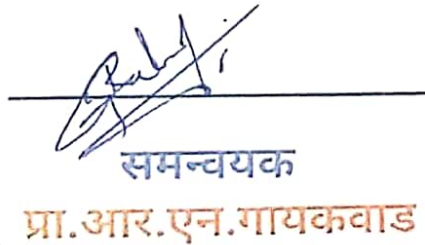 समन्वयक
प्रा.आर.एन.गायकवाड